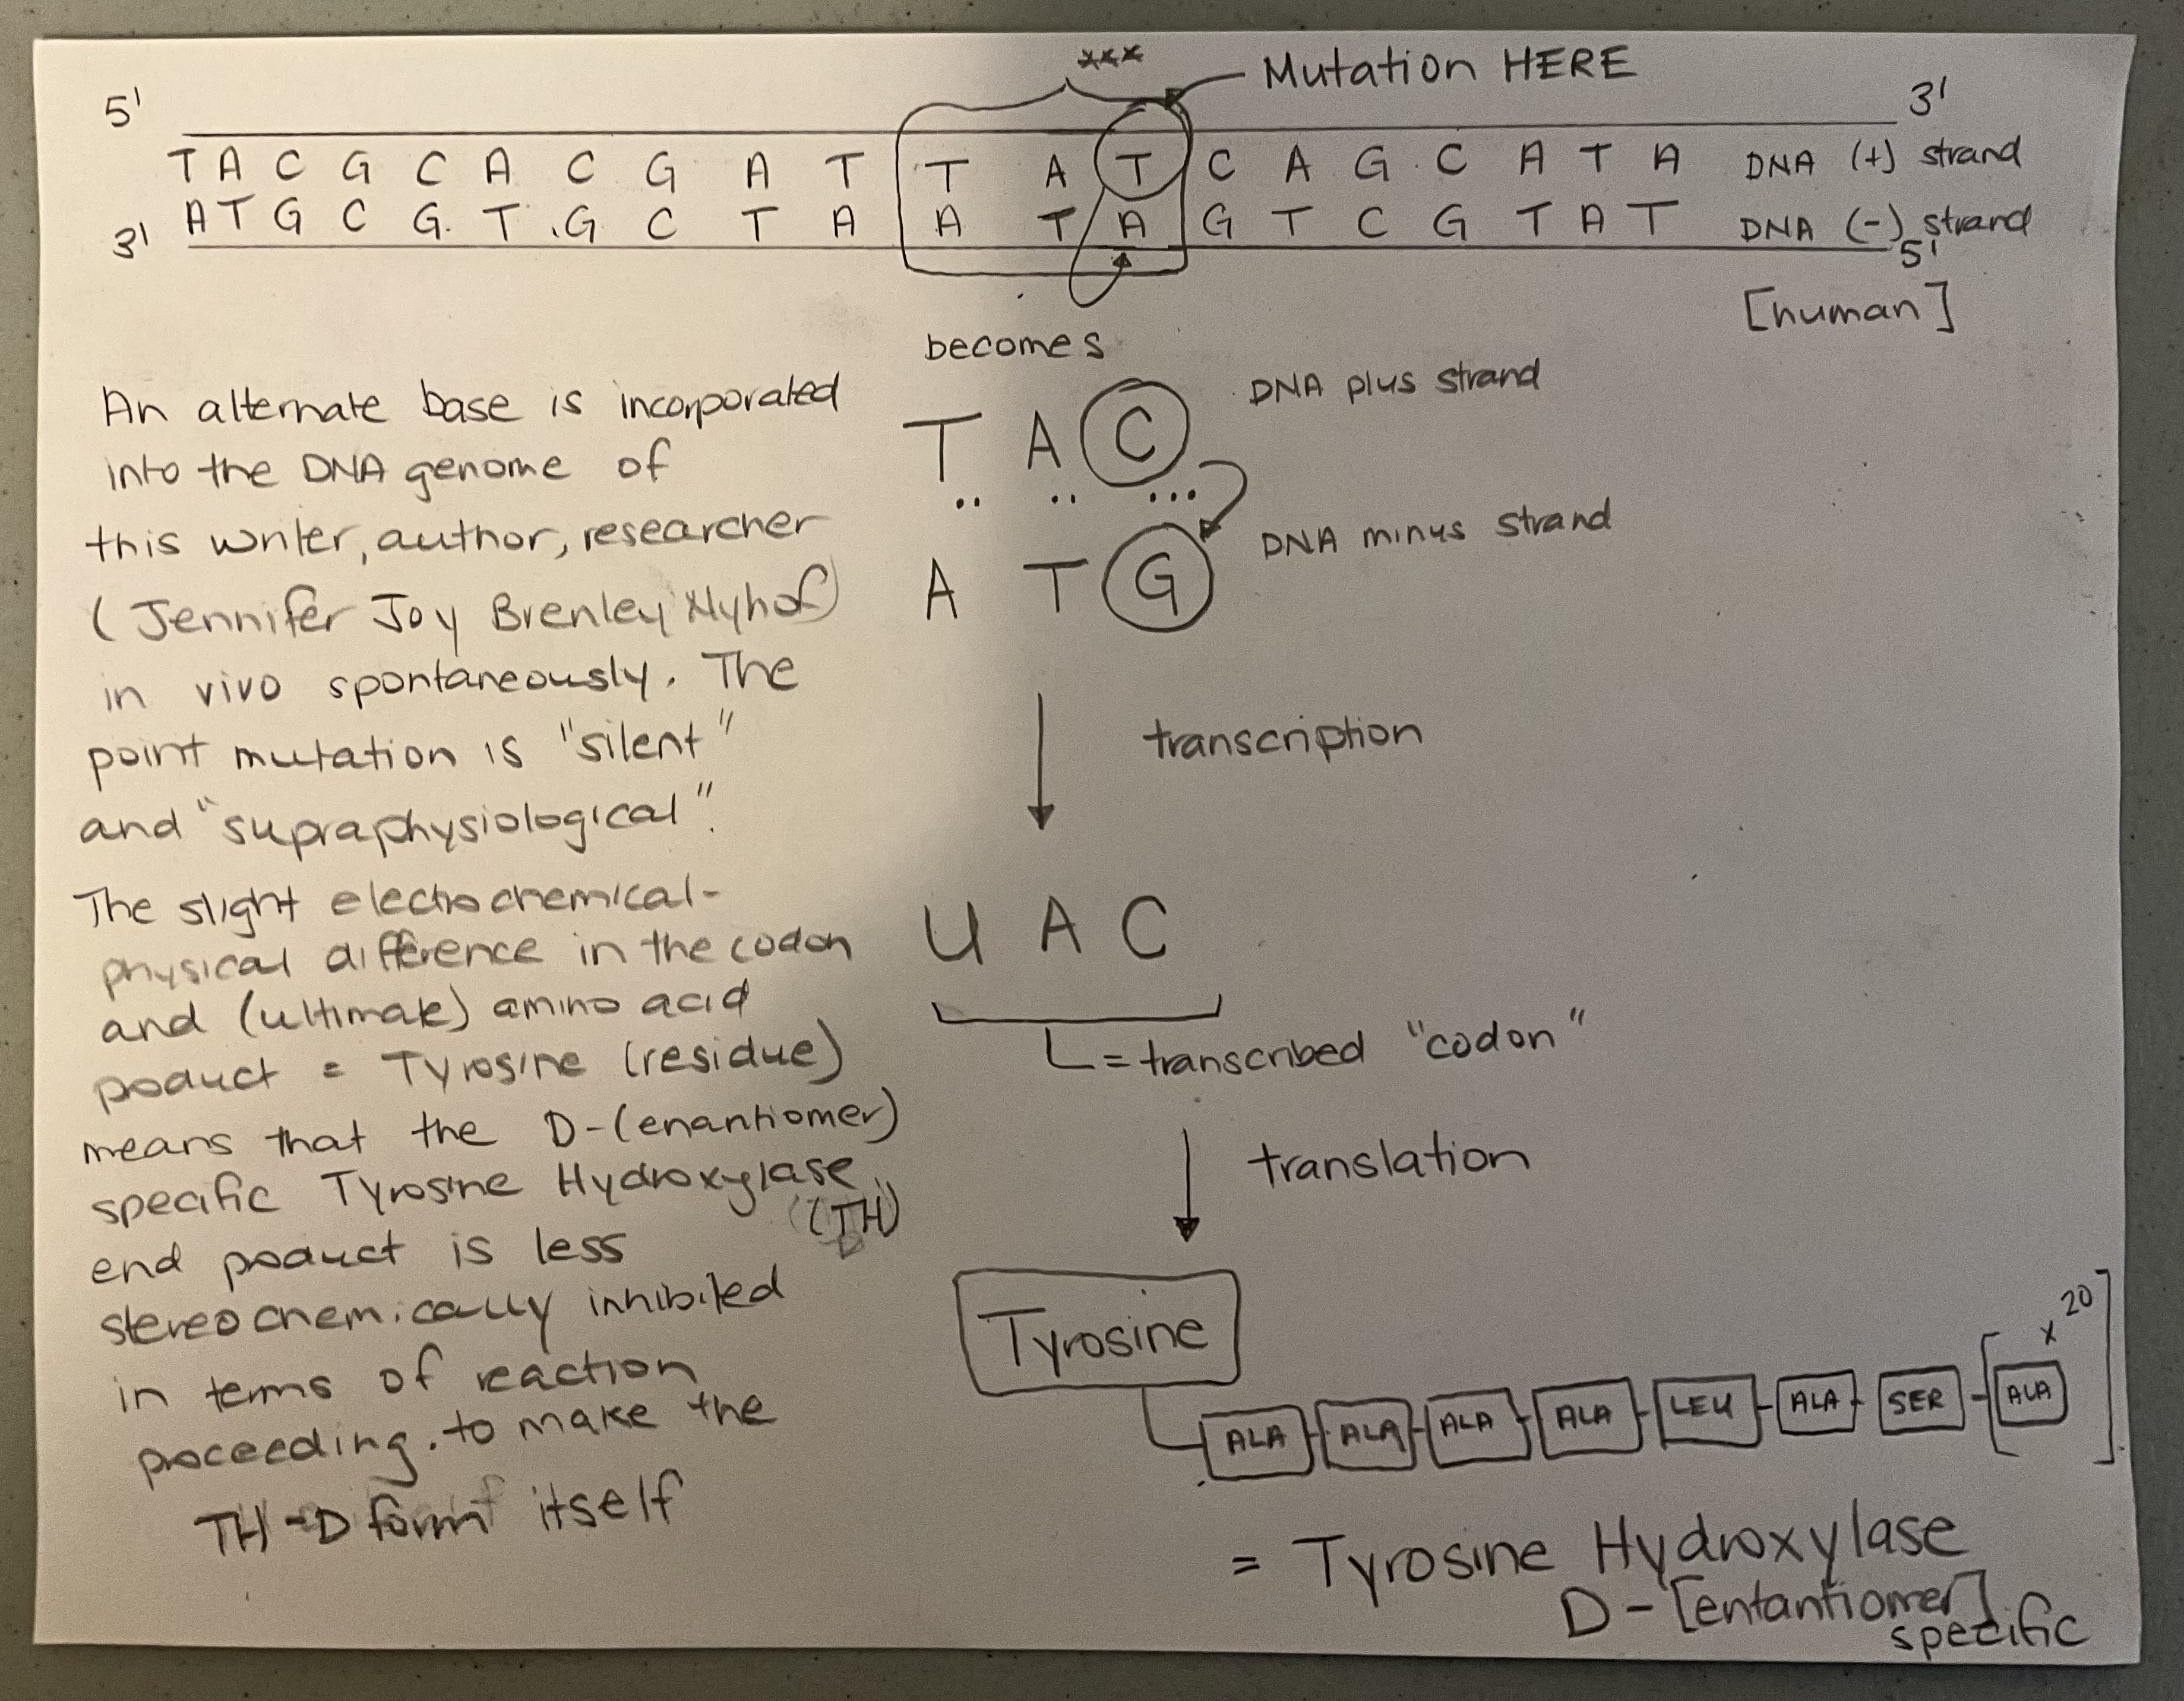 *** Mutation HERE
5' 3'
T A C G C A C G A T T A T C A G C A T A DNA (+) strand
A T G C G T G C T A A T A G T C G T A T DNA (-) strand
3' 5'
[human]
becomes
T A C DNA plus strand
A T G DNA minus strand
transcription
U A C
= transcribed "codon"
translation
Tyrosine
ALA ALA ALA ALA LEU ALA SER [ALA] x 20
= Tyrosine Hydroxylase
D-[entantiomer]
specific
An alternate base is incorporated
into the DNA genome of
this writer, author, researcher
(Jennifer Joy Brenley Nyhof)
in vivo spontaneously. The
point mutation is "silent"
and "supraphysiological".
The slight electrochemical-
physical difference in the codon
and (ultimate) amino acid
product = Tyrosine (residue)
means that the D-(enantiomer)
specific Tyrosine Hydroxylase
(TH)
end product is less
stereochemically inhibited
in terms of reaction
proceeding. to make the
TH-D form itself